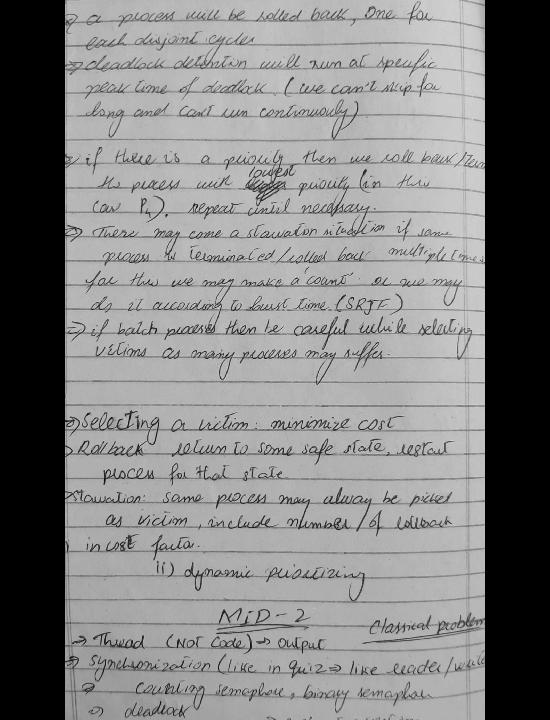 ⇒ a process will be rolled back, one for
each disjoint cycles
⇒ deadlock detention will run at specific
peak time of deadlock. (we can't skip for
long and can't run continuously)
⇒ if there is a priority then we roll back/Term
the process with lowest priority (in this
case P4), repeat until necessary.
⇒ There may come a starvation situation if same
process is terminated/rolled back multiple times
for this we may make a 'count' or we may
do it according to burst time. (SRJF)
⇒ if batch process then be careful while selecting
victims as many processes may suffer.
⇒ Selecting a victim: minimize cost
⇒ Rollback return to some safe state, restart
process for that state
⇒ Starvation: same process may always be picked
as victim, include number of rollback
i in cost factor.
ii) dynamic priortizing
MiD-2
Classical problem
⇒ Thread (NOT Code) → output
⇒ Synchronization (like in quiz ⇒ like reader/write
⇒ counting semaphore, binary semaphore
⇒ deadlock